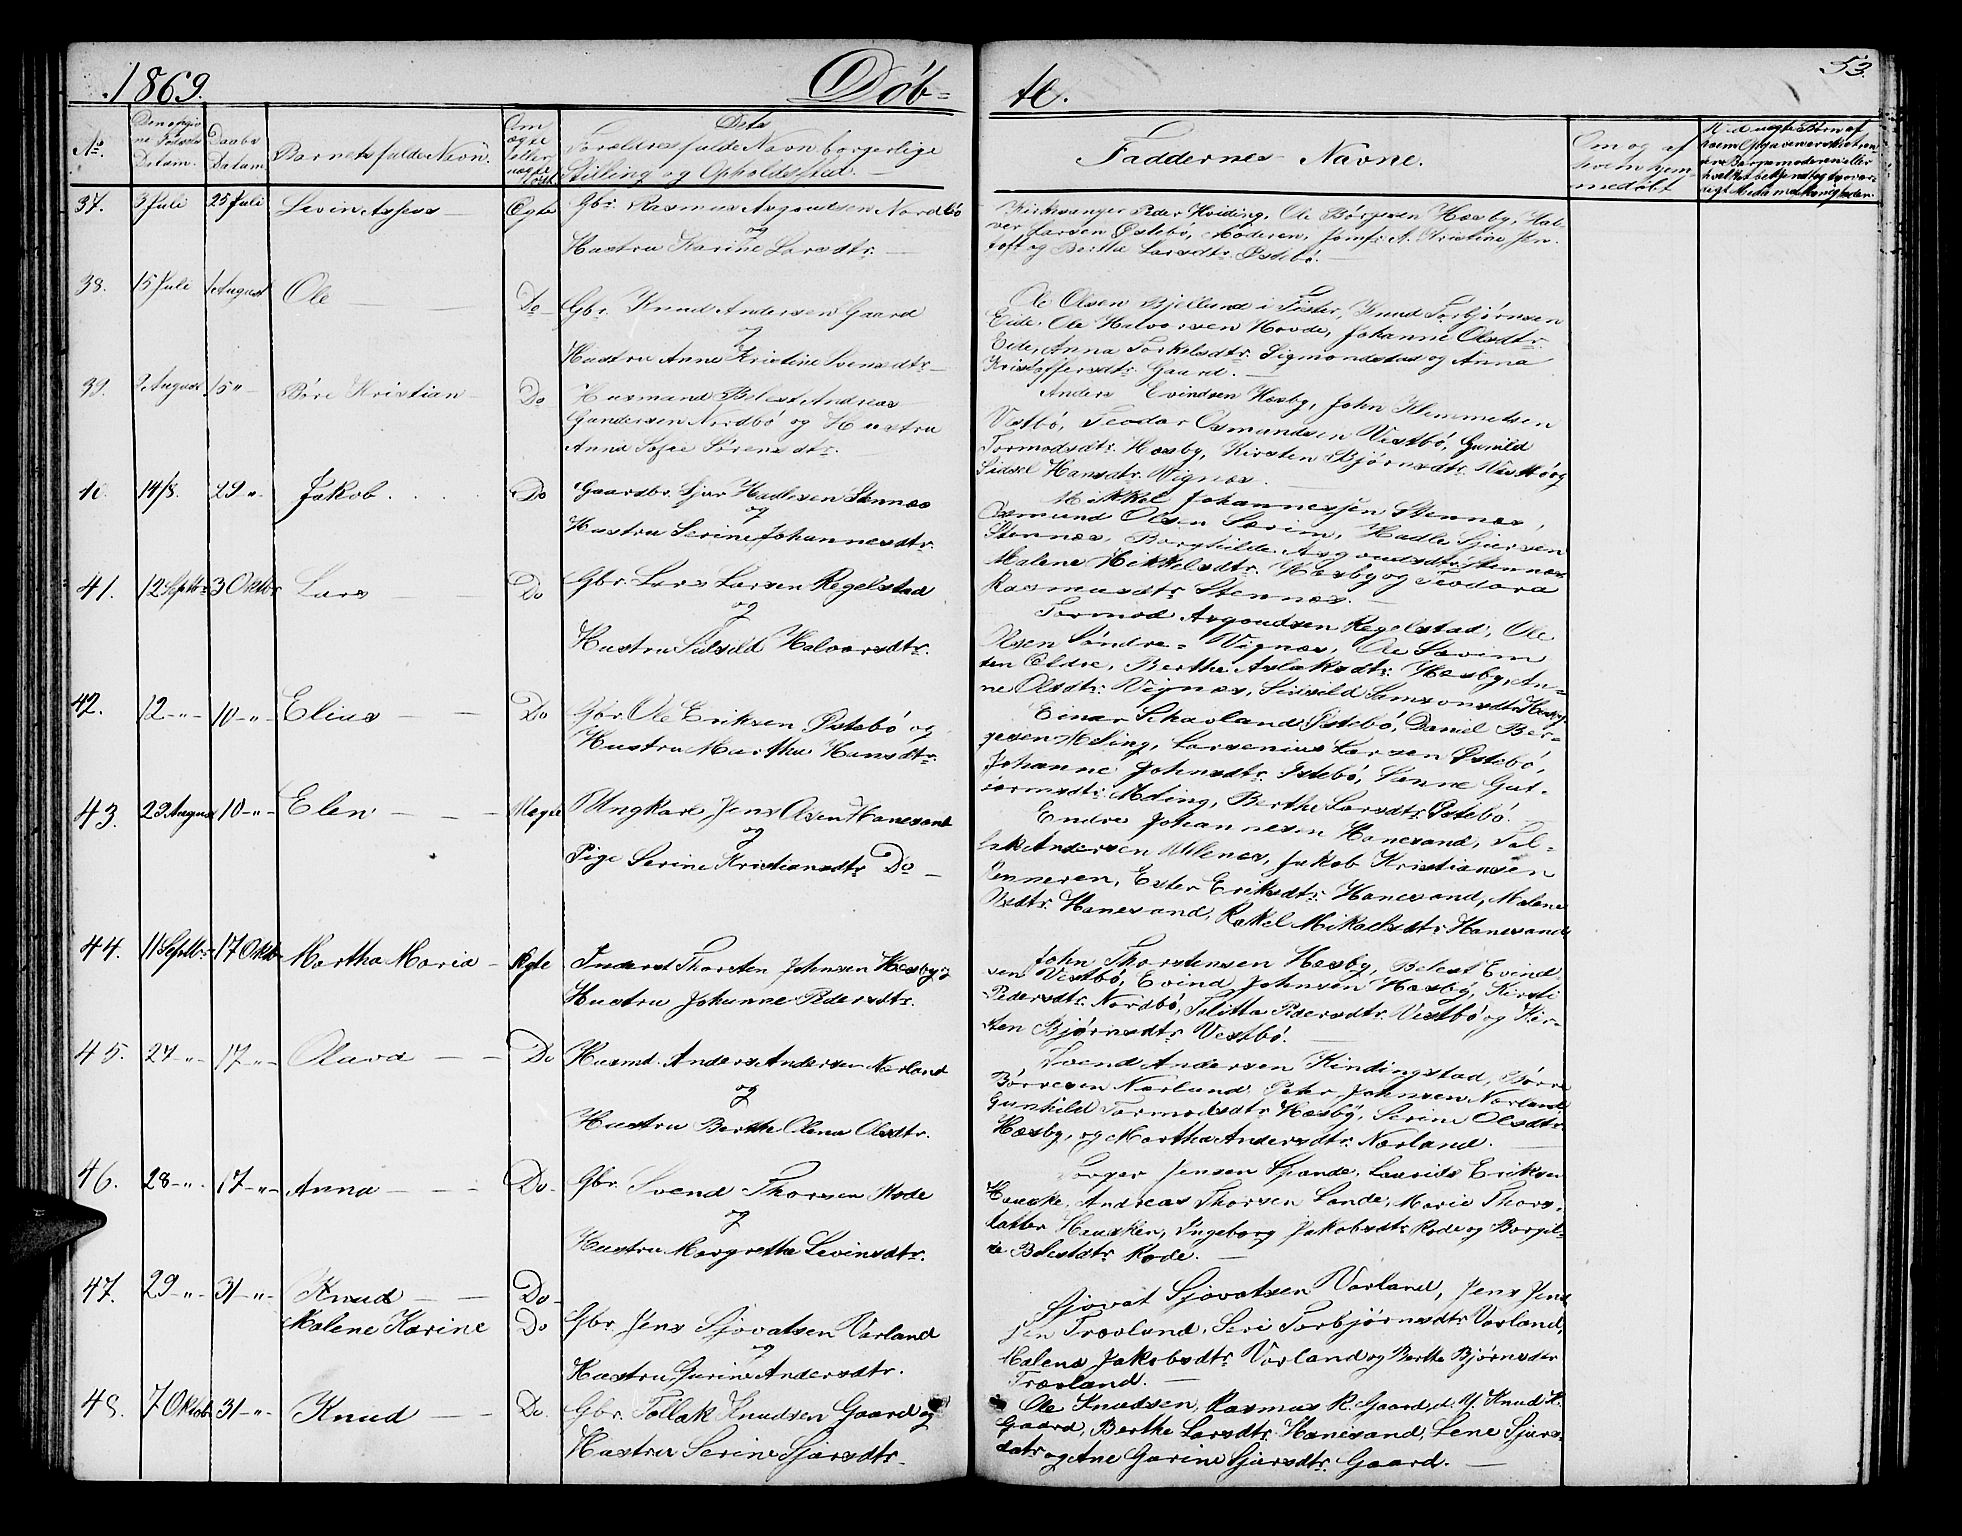 1869. Døb=
te. 53.
No. Den opgivne Fødsels Datum. Daabs Datum Barnets fulde Navn. Om ægte eller uægte født. Dets Forældres fulde Navn borgerlige Stilling og Opholdssted. Faddernes Navne. Om og af hvem hjemmedøbt
37. 3 Juli 25 Juli Levin — Ægte Gbr. Rasmus Asgoudsen Nordbø
og
Hustru Karine Larsdtr. —
Kirksanger Peder Hviding, Ole Børgesen Hæsby, Hal-
vor Larsen Østebø, Moderen, Jomfr. A. Kristine Jen-
toft og Berthe Larsdtr. Østebø. —
38. 15 Juli 1 August Ole — Do Gbr. Knud Andersen Gaard
og
Hustru Anne Kristine Svensdtr. —
Ole Olsen Bjelland i Fister, Knud Torbjørnsen
Eide, Ole Halvorsen Hovde, Johanne Olsdtr.
Eide, Anna Torkelsdtr. Sigmondstad og Anna
Kristoffersdtr. Gaard. —
39. 2 August 15 " Børe Kristian — Do Husmand Belest Andreas
Gundersen Nordbø og Hustru
Anna Sofie Sørensdtr. —
Anders Evindsen Hæsby, John Klemmetsen
Vestbø, Teodor Osmundsen Vestbø, Gunild
Tormodsdtr. Hæsby, Kirsten Bjørnsdtr. Vestbø og
Sidsel Hansdtr. Vignæs. —
40. 14/8. 29 " Jakob . . . Do Gaardbr. Sjur Hadlesen Stennæs
og
Hustru Serine Johannesdtr.
Mikkel Johannessen Stennæs,
Osmund Olsen Sævim, Hadle Sjursen
Stennæs, Borghilde Asgoudsdtr. Stennæs
Malene Mikkelsdtr. Hæsby og Teodora
Rasmusdtr. Stennæs. —
41. 12 Septbr. 3 Oktbr. Lars — Do Gbr. Lars Larsen Regelstad
og
Hustru Halvorsdtr.
Tormod Asgoudsen Regelstad, Ole
Olsen Søndre-Vignæs, Ole Sævim
den Eldre, Berthe Aslaksdtr. Hæsby, An-
ne Olsdtr. Vignæs, Siselid Samsonsdtr. Hæsby
42. 12 " 10 " Elias — Do Gbr. Ole Eriksen Østebø og
Hustru Martha Hansdtr.
Einar Schavland Østebø, Daniel Bør-
gesen Meling, Larsenius Larsen Østebø,
Johanne Johnsdtr. Østebø, Sanne Gut-
tormsdtr. Meling, Berthe Larsdtr. Østebø.
43. 22 August 10 " Elen — Uægte Ungkarl Jens Olsen Hanesand
og
Pige Serine Kristiansdtr. Do —
Endre Johannesen Hanesand, Tol-
lak Andersen Jakob Kristiansen
Ester Eriksdtr. Hanesand, Malene
Olsdtr. Hanesand, Rakel Mikaelsdtr. Hanesand
44. 11 Septbr. 17 Oktbr. Martha Maria — Ægte Inderst Thorsten Johnsen Hæsby og
Hustru Johanne Pedersdtr.
John Thorstensen Hæsby, Belest Evind-
sen Vestbø, Evind Johnsen Hæsby, Kirsti
Pedersdtr. Nordbø, Talitta Pedersdtr. Vestbø og Kir-
sten Bjørnsdtr. Vestbø.
45. 27 " 17 " Olava — Do Husmd. Anders Andersen Nærland
og
Hustru Berthe Olena Olsdtr.
Svend Andersen Kindingstad, Børe
Børresen Nærland, Peter Johnsen Nærland
Gunhild Tormodsdtr. Hæsby, Serine Olsdtr.
Hæsby, og Martha Andersdtr. Nærland. —
46. 28 " 17 " Anna — Do Gbr. Svend Thorsen Rode
og
Hustru Margrethe Levinsdtr.
Torger Jensen Sjande, Laurids Eriksen
Hauske, Andreas Thorsen Lande, Marie Thors-
datter Hausken, Ingeborg Jakobsdtr. Rode og Borgil-
de Belestdtr. Rode. —
47. 29 " 31 " Knud — Do
Malene Karine Do Gbr. Jens Sjovatsen Varland
og
Hustru Gurine Andersdtr.
Sjovat Sjovatsen Varland, Jens Jen-
sen Trævland, Seri Torbjørnsdtr. Varland,
Malene Jakobsdtr. Varland og Berthe Bjørnsdtr.
Trævland. —
48. 7 Oktobr. 31 " Knud — Do Gbr. Tollak Knudsen Gaard og
Hustru Serine Sjursdtr.
Ole Knudsen, Rasmus R. Gaard, d. Y. Knud K.
Gaard, Berthe Larsdtr. Hanesand, Lene Sjurs-
datr. og Ane Gurine Sjursdtr. Gaard. —